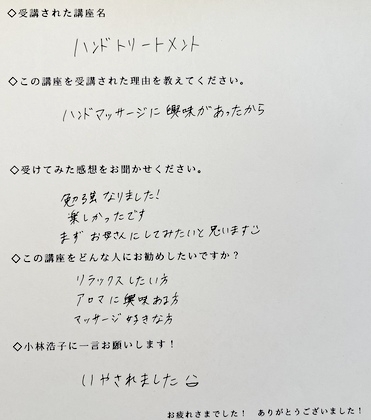 ◇受講された講座名
ハンドトリートメント
◇この講座を受講された理由を教えてください。
ハンドマッサージに興味があったから
◇受けてみた感想をお聞かせください。
勉強なりました!
楽しかったです
まずお母さんにしてみたいと思います☺
◇この講座をどんな人にお勧めしたいですか?
リラックスしたい方
アロマに興味ある方
マッサージ好きな方
◇小林浩子に一言お願いします!
いやされました☺
お疲れさまでした! ありがとうございました!